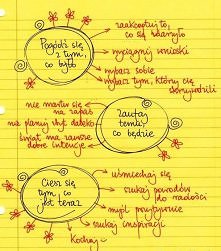 Pogódź się
z tym,
co było
zaakceptuj to,
co się zdarzyło
wyciągnij wnioski
wybacz sobie
wybacz tym, którzy cię
skrzywdzili
nie martw się
na zapas
nie planuj zbyt daleko
świat ma zawsze
dobre intencje
Zaufaj
temu,
co będzie
Ciesz się
tym, co
jest teraz
uśmiechaj się
szukaj powodów
do radości
myśl pozytywnie
szukaj inspiracji
Kochaj